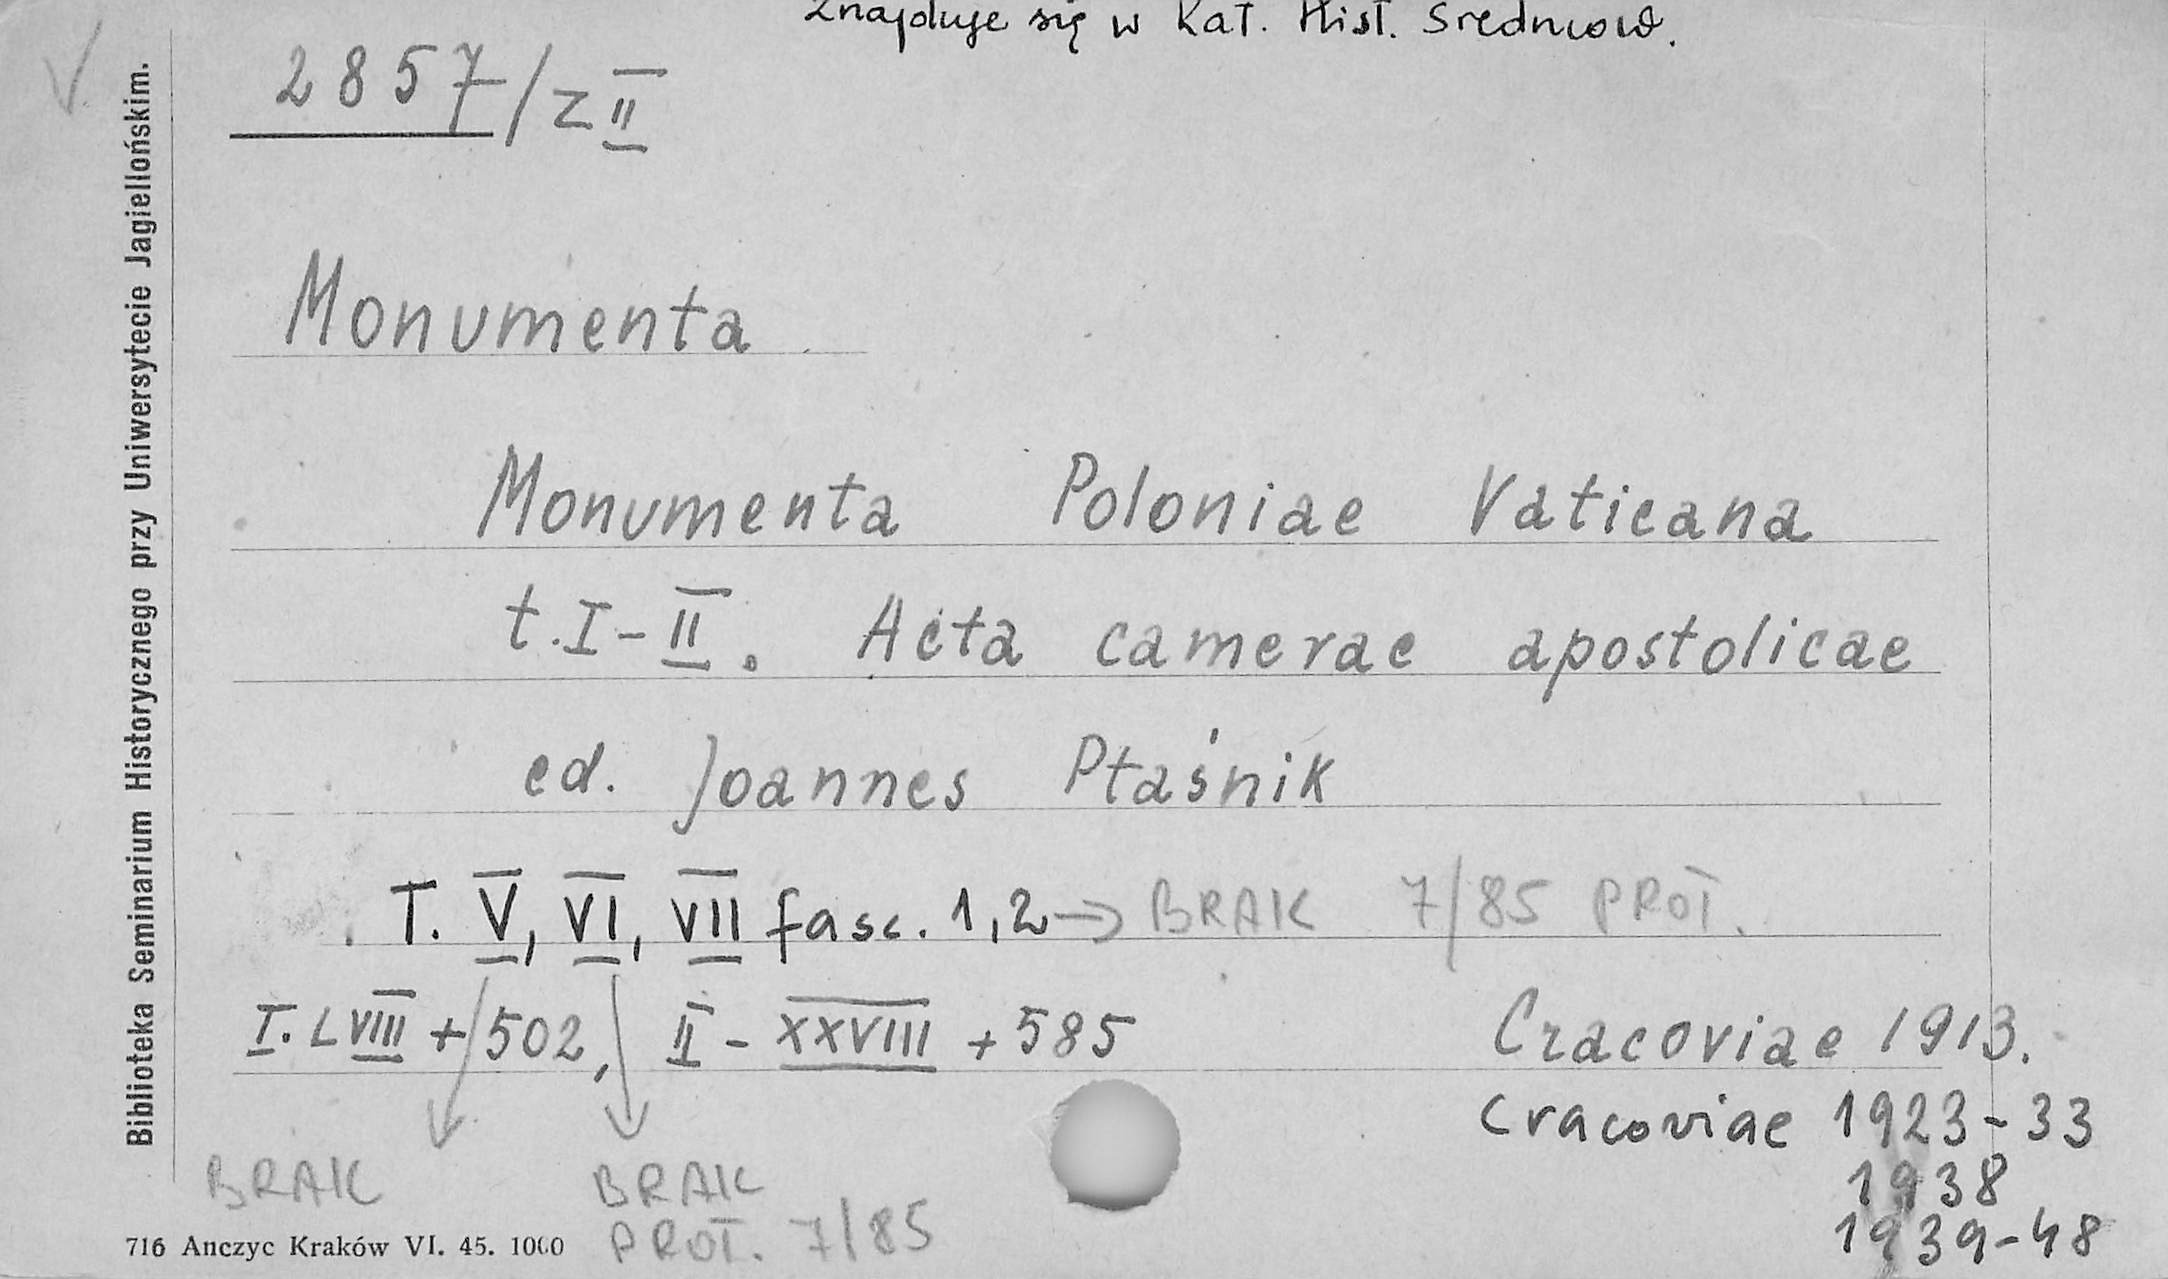 Znajduje się w Kat. Hist. Średniow.
2857/z II
Monumenta
Monumenta Poloniae Vaticana
t. I-II. Acta camerae apostolicae
ed. Joannes Ptaśnik
T. V, VI, VII fasc. 1,2 → BRAK 7/85 PROT.
I. LVIII + 502, II - XXVIII + 585 Cracoviae 1913.
Cracoviae 1923-33
1938
1939-48
BRAK BRAK
PROT. 7/85
716 Anczyc Kraków VI. 45. 1000
Biblioteka Seminarium Historycznego przy Uniwersytecie Jagiellońskim.